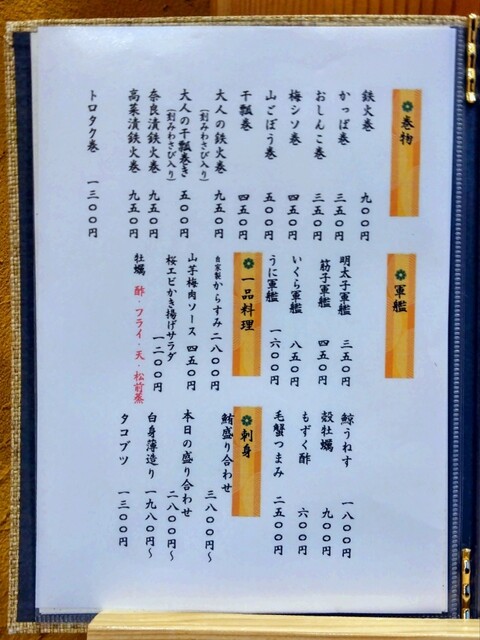 巻物
鉄火巻 九〇〇円
かっぱ巻 三五〇円
おしんこ巻 三五〇円
梅シソ巻 三五〇円
山ごぼう巻 五〇〇円
干瓢巻 四五〇円
大人の鉄火巻 九五〇円
(刻みわさび入り)
大人の干瓢巻き 五〇〇円
(刻みわさび入り)
奈良漬鉄火巻 九五〇円
高菜漬鉄火巻 九五〇円
トロタク巻 一三〇〇円
軍艦
明太子軍艦 三五〇円
筋子軍艦 四五〇円
いくら軍艦 八五〇円
うに軍艦 一六〇〇円
一品料理
自家製からすみ 二八〇〇円
山芋梅肉ソース 四五〇円
桜エビかき揚げサラダ 一二〇〇円
牡蠣 酢・フライ・天・松前蒸
鯨うねす 一八〇〇円
殻牡蠣 九〇〇円
もずく酢 六〇〇円
毛蟹つまみ 二五〇〇円
刺身
鮪盛り合わせ 三八〇〇円〜
本日の盛り合わせ 二八〇〇円〜
白身薄造り 一九八〇円〜
タコブツ 一三〇〇円